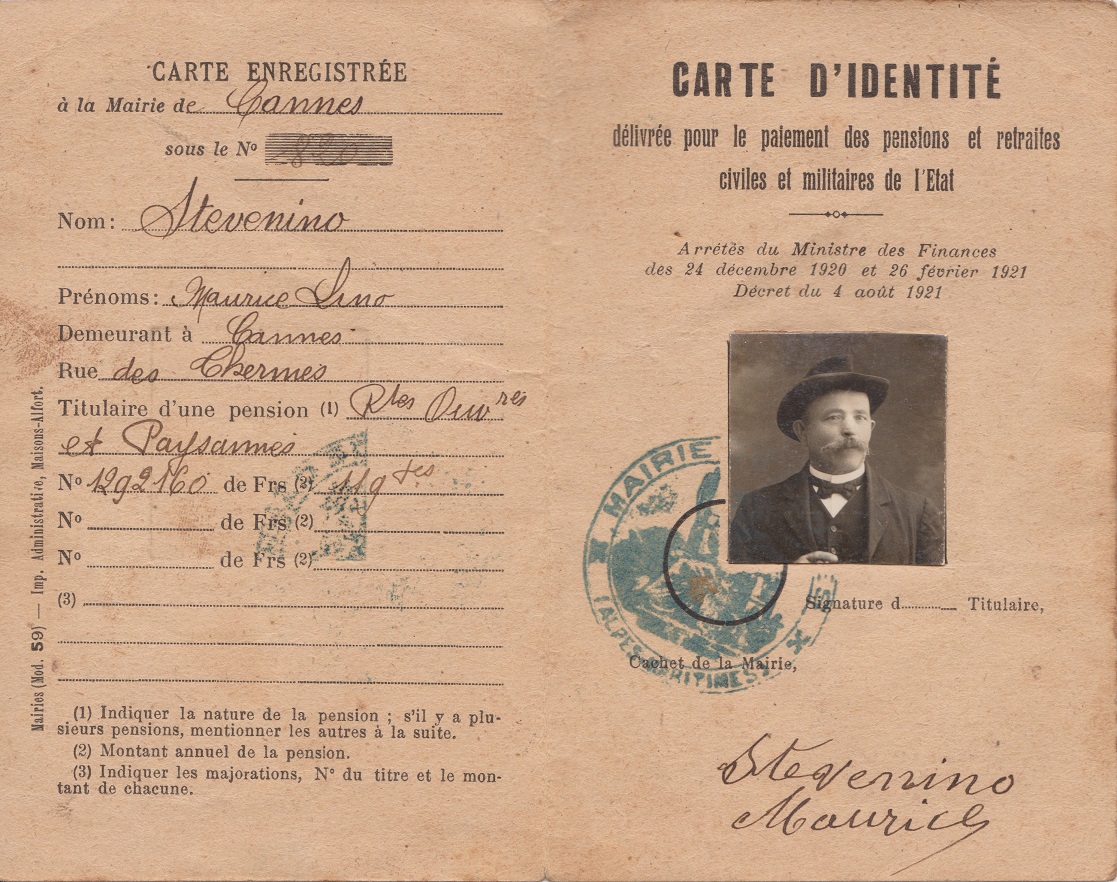 CARTE ENREGISTRÉE
à la Mairie de Cannes
sous le Nº
Nom: Stevenino
Prénoms: Maurice Lino
Demeurant à Cannes
Rue des Thermes
Titulaire d'une pension (1) Rtes Ouvres
et Paysannes
Nº 1292160 de Frs (2) 119
Nº de Frs (2)
Nº de Frs (2)
(3)
(1) Indiquer la nature de la pension ; s'il y a plu-
sieurs pensions, mentionner les autres à la suite.
(2) Montant annuel de la pension.
(3) Indiquer les majorations, N° du titre et le mon-
tant de chacune.
Mairies (Mod. 59) — Imp. Administrative, Maisons-Alfort.
CARTE D'IDENTITÉ
délivrée pour le paiement des pensions et retraites
civiles et militaires de l'Etat
Arrêtés du Ministre des Finances
des 24 décembre 1920 et 26 février 1921
Décret du 4 août 1921
MAIRIE
(ALPES-MARITIMES)
Signature d Titulaire,
Cachet de la Mairie,
Stevenino
Maurice